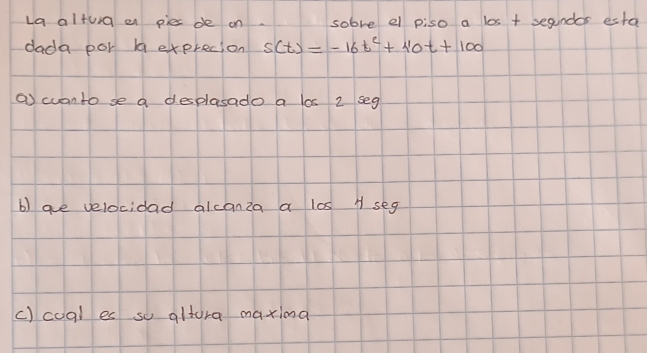 La altura en pies de un . sobre el piso a los t segundos esta
dada por la exprecion s(t) = -16t² + 40t + 100
a) cuanto se a desplasado a los 2 seg
b) que velocidad alcanza a los 4 seg
c) cual es su altura maxima